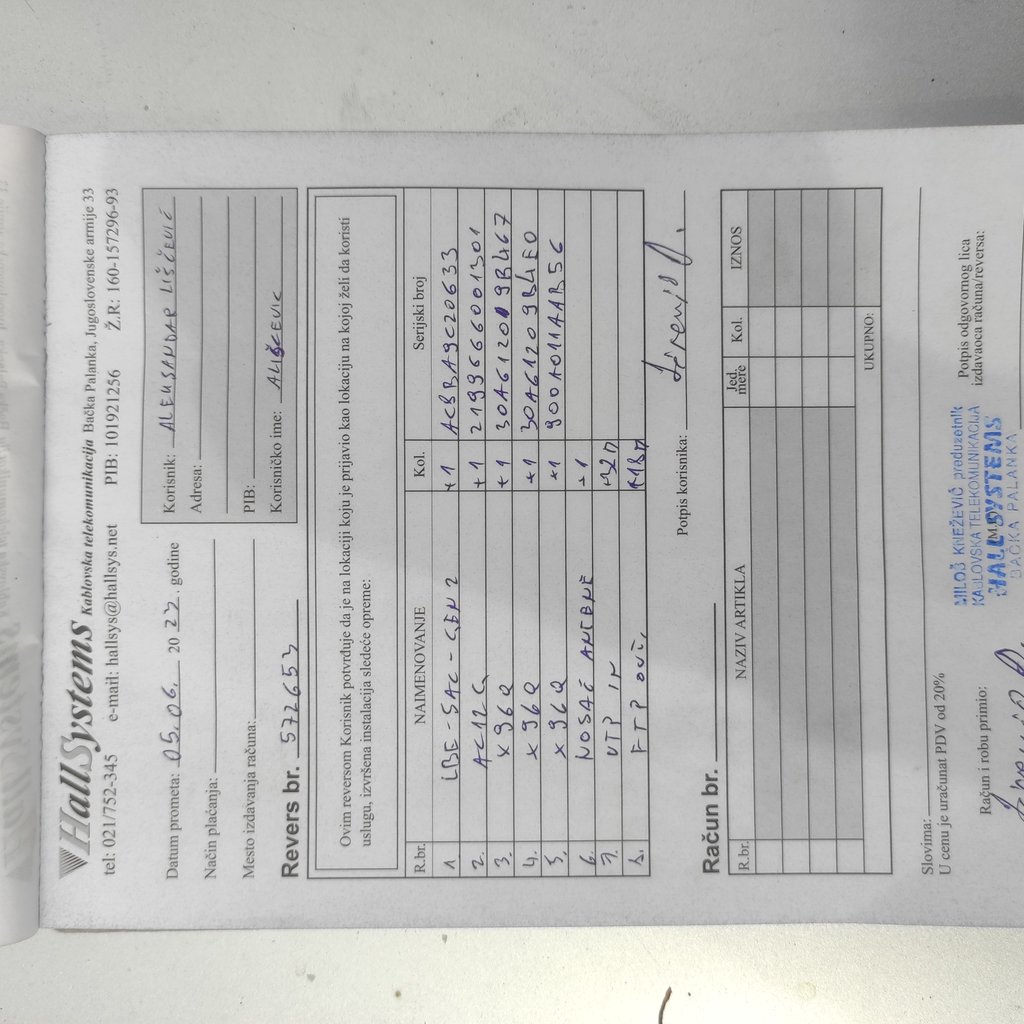 HallSystems Kablovska telekomunikacija Bačka Palanka, Jugoslovenske armije 33
tel: 021/752-345 e-mail: hallsys@hallsys.net PIB: 101921256 Ž.R: 160-157296-93
Datum prometa: 05.06. 2023. godine
Način plaćanja:
Mesto izdavanja računa:
Korisnik: ALEKSANDAR LIŠČEVIĆ
Adresa:
PIB:
Korisničko ime: ALIŠCEVIC
Revers br. 572653
Ovim reversom Korisnik potvrđuje da je na lokaciji koju je prijavio kao lokaciju na kojoj želi da koristi
uslugu, izvršena instalacija sledeće opreme:
R.br. NAIMENOVANJE Kol. Serijski broj
1 LBE-5AC-GEN2 +1 AC8BA9C20633
2. AC12G +1 2199666001301
3. X96Q +1 30A612009B467
4. X96Q +1 30A61209B4E0
5. X96Q +1 900A011AAB56
6. NOSAČ ANTENE +1
7. UTP IN +32m
8. FTP OUT. +18m
Potpis korisnika:
Račun br.
R.br. NAZIV ARTIKLA Jed. mere Kol. IZNOS
UKUPNO:
Slovima:
U cenu je uračunat PDV od 20%
Račun i robu primio:
(M.P.)
Potpis odgovornog lica
izdavaoca računa/reversa:
MILOŠ KNEŽEVIĆ preduzetnik
KABLOVSKA TELEKOMUNIKACIJA
HALL SYSTEMS
BAČKA PALANKA